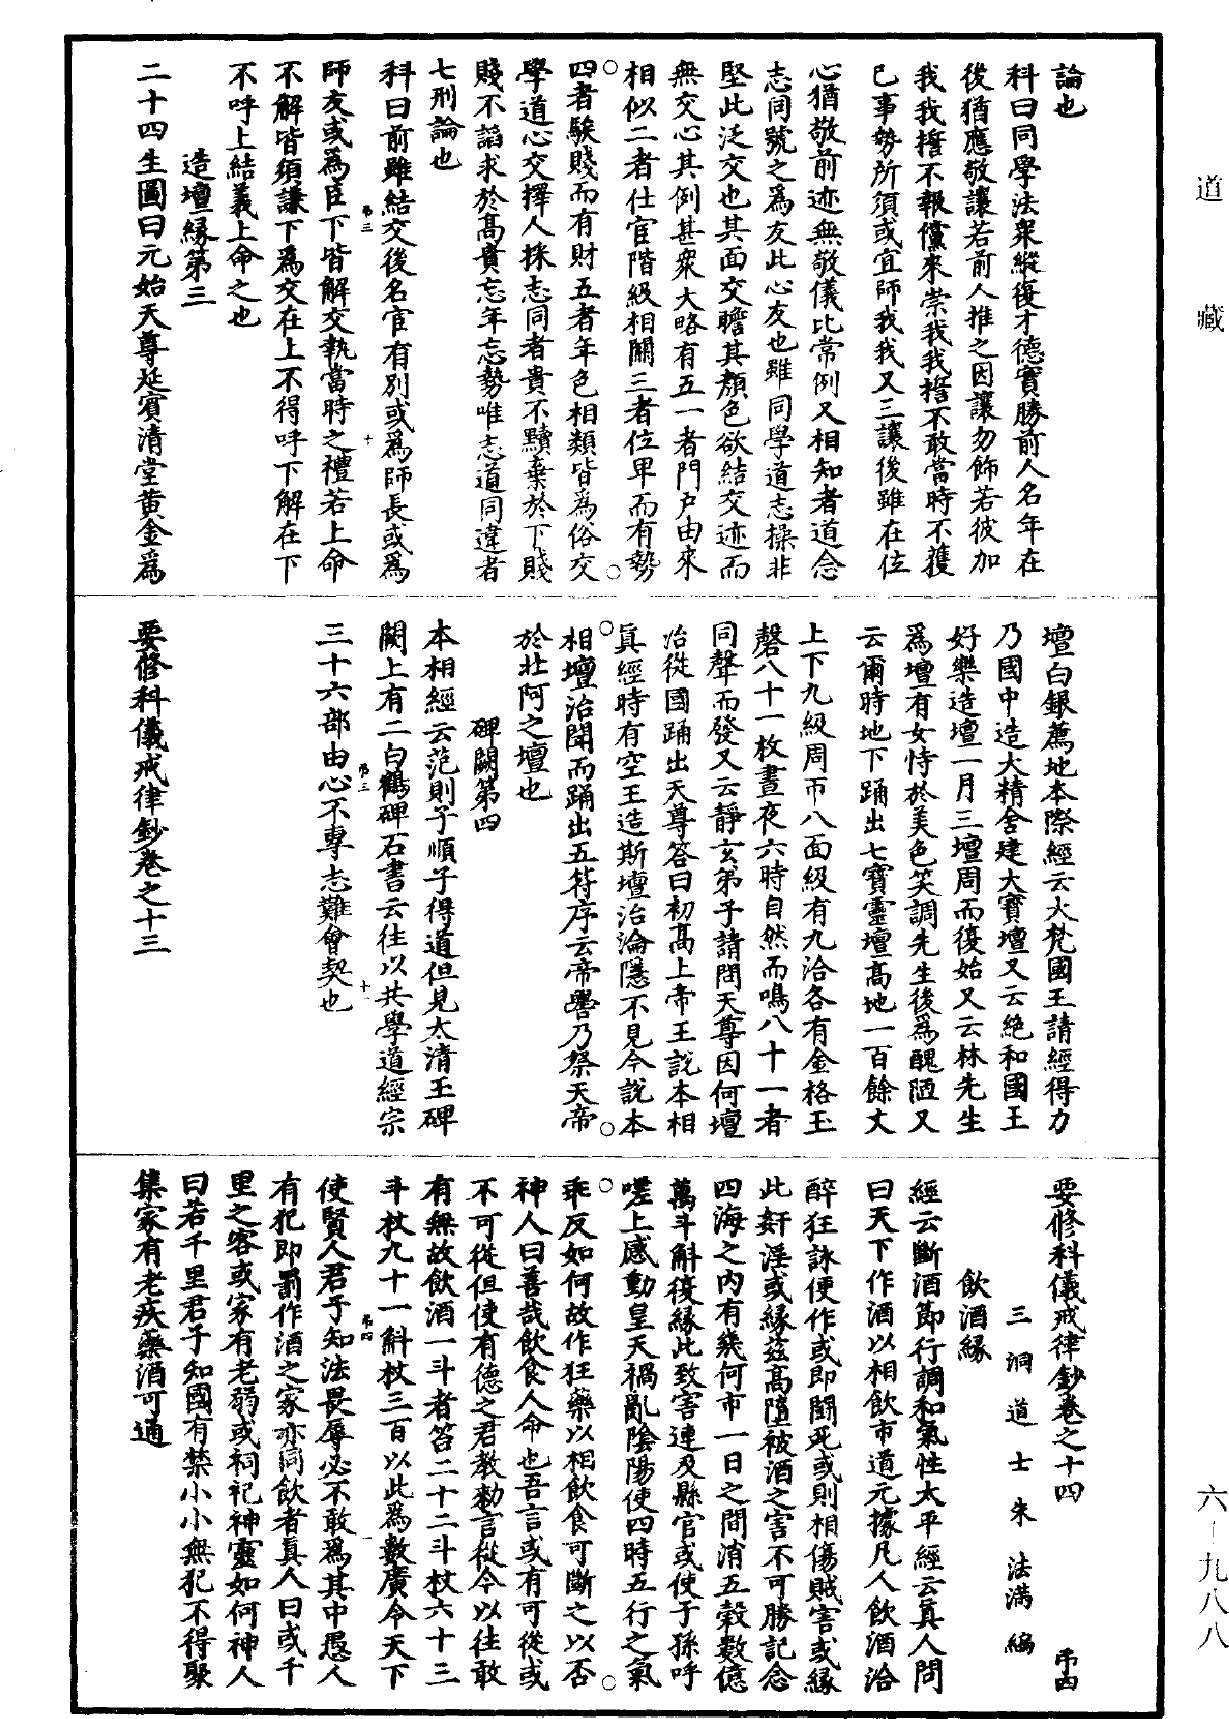 道藏
論也
科曰同學法衆縱復才德實勝前人名年在
後猶應敬讓若前人推之因讓勿飾若彼加
我我擔不報儻來崇我我擔不敢當時不獲
已事勢所須或宜師我我又三讓後雖在位
心猶敬前迹無敬儀比常例又相知者道念
志同號之爲友此心友也雖同學道志操非
堅此泛交也其面交瞻其顏色欲結交迹而
無交心其例甚衆大略有五一者門户由來
相似二者仕官階級相關三者位卑而有勢
四者騃賤而有財五者年色相類皆爲俗交
學道心交擇人採志同者貴不黷棄於下賤
賤不諂求於高貴忘年忘勢唯志道同違者
七刑論也
科曰前雖結交後名官有別或爲師長或爲
師友或爲臣下皆解交執當時之禮若上命
不解皆須謙下爲交在上不得呼下解在下
不呼上結義上命之也
造壇緣第三
二十四生圖曰元始天尊延賓清堂黄金爲
壇白銀薦地本際經云大梵國王請經得力
乃國中造大精舍建大寶壇又云絶和國王
好樂造壇一月三壇周而復始又云林先生
爲壇有女恃於美色笑調先生後爲醜陋又
云爾時地下踊出七寶靈壇高地一百餘丈
上下九級周帀八面級有九洽各有金格玉
磬八十一枚晝夜六時自然而鳴八十一者
同聲而發又云靜玄弟子請問天尊因何壇
冶從國踊出天尊答曰初高上帝王說本相
眞經時有空王造斯壇治淪隱不見今說本
相壇治聞而踊出五符序云帝嚳乃祭天帝
於北阿之壇也
碑闕第四
本相經云范則子順子得道但見太清王碑
闕上有二白鶴碑石書云往以共學道經宗
三十六部由心不專志難會契也
要修科儀戒律鈔卷之十三
要修科儀戒律鈔卷之十四 弔四
三洞道士朱法滿編
飲酒緣
經云斷酒節行調和氣性太平經云眞人問
曰天下作酒以相飲市道元據凡人飲酒洽
醉狂詠便作或即鬭死或則相傷賊害或緣
此奸淫或緣兹高墮被酒之害不可勝記念
四海之内有幾何市一日之間消五穀數億
萬斗斛復緣此致害連及縣官或使子孫呼
嗟上感動皇天禍亂陰陽使四時五行之氣
乖反如何故作狂藥以相飲食可斷之以否
神人曰善哉飲食人命也吾言或有可從或
不可從但使有德之君教勑言從今以往敢
有無故飲酒一斗者笞二十二斗杖六十三
斗杖九十一斛杖三百以此爲數廣令天下
使賢人君子知法畏辱必不敢爲其中愚人
有犯即罰作酒之家亦同飲者眞人曰或千
里之客或家有老弱或祠祀神靈如何神人
曰若千里君子知國有禁小小無犯不得聚
集家有老疾藥酒可通
六-九八八